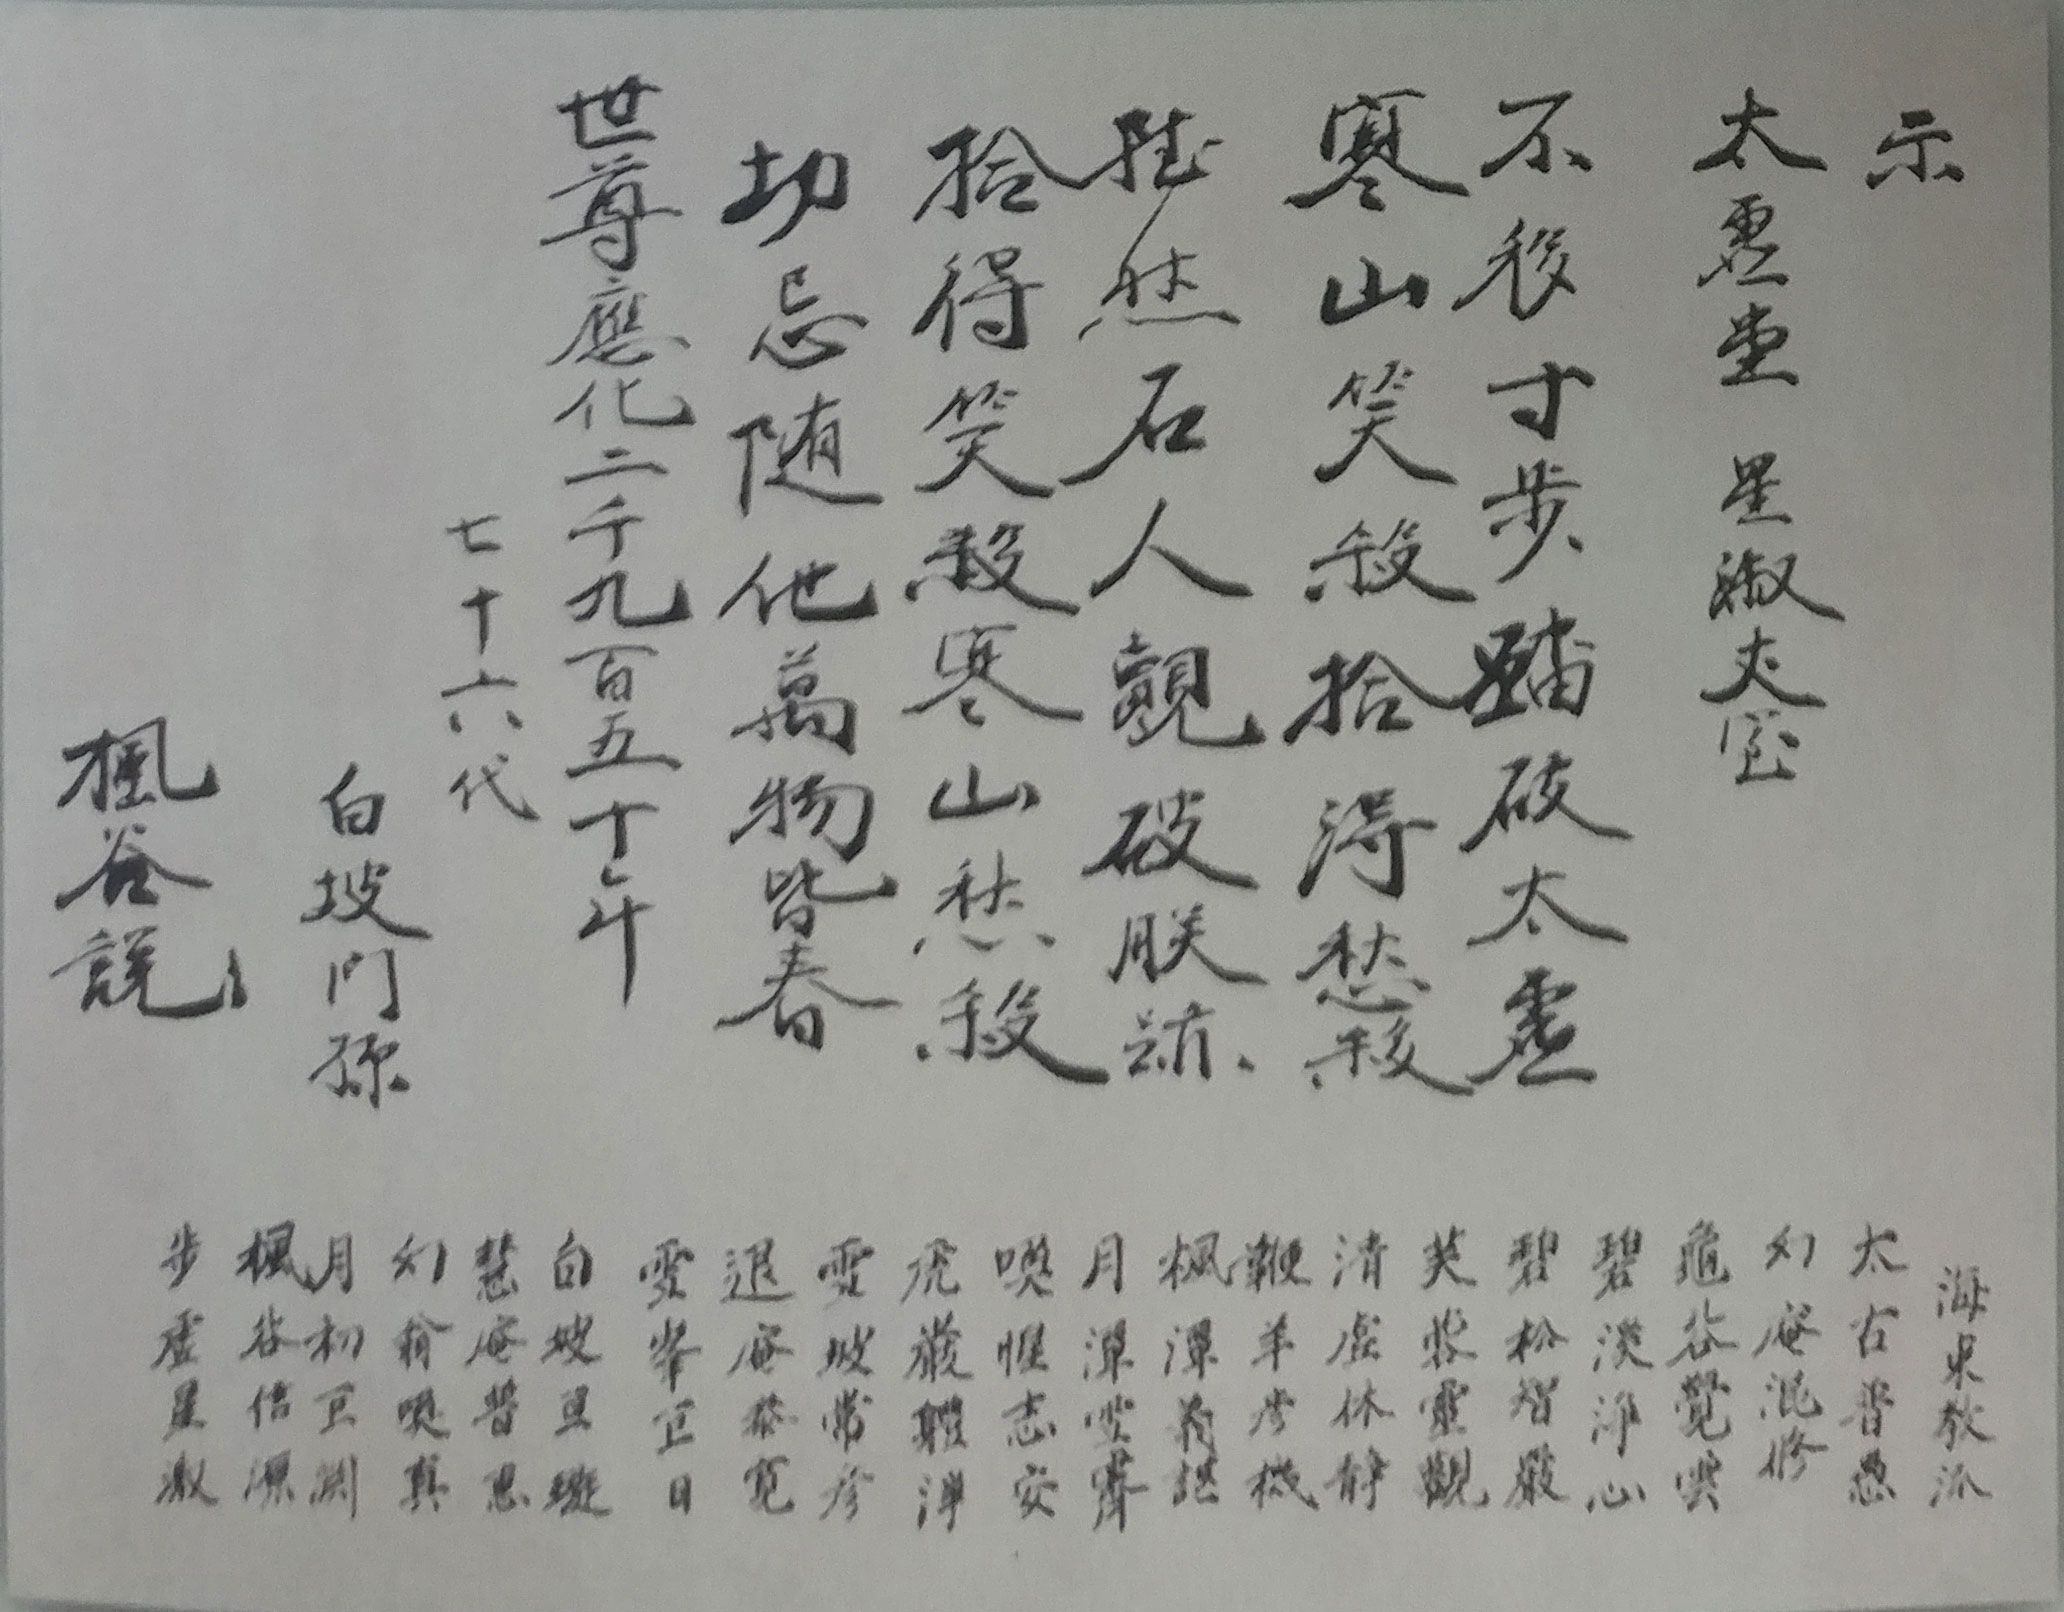 示
太虛堂 星淑丈室
不移寸步踏破太虛
寒山笑殺拾得愁殺
陡然石人覷破朕跡
拾得笑殺寒山愁殺
切忌随他萬物皆春
世尊應化二千九百五十七年
七十六代
白坡門孫
楓谷說
海東教派
太古普愚
幻庵混修
龜谷覺雲
碧溪淨心
碧松智嚴
芙蓉靈觀
清虛休静
鞭羊彦機
楓潭義諶
月潭雪霽
喚惺志安
虎巖體淨
雪坡常彦
退庵泰寬
雪峯巨日
白坡亘璇
慧庵普恩
幻翁喚真
月初巨淵
楓谷信源
步虛星淑